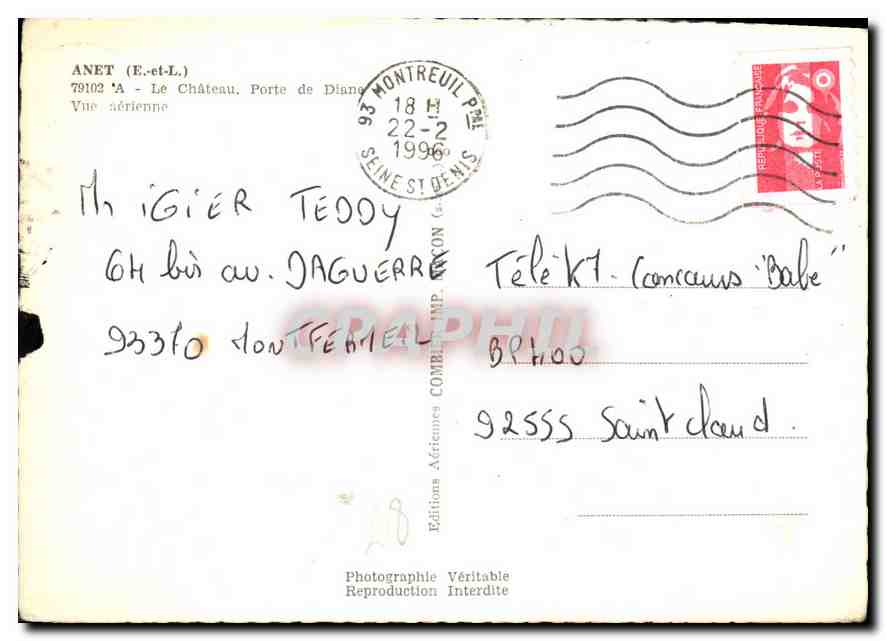 ANET (E.-et-L.)
79102 A - Le Château, Porte de Diane
Vue aérienne
93 MONTREUIL PPAL
18 H
22-2
1996
SEINE ST DENIS
REPUBLIQUE FRANÇAISE
LA POSTE
Mr IGIER TEDDY
64 bis av. DAGUERRE
93370 MONTFERMEIL
Télé K7 - Concours "Babe"
BP 400
92555 Saint Cloud.
Editions Aériennes COMBIER IMP. MACON
CPAPHIL
28
Photographie Véritable
Reproduction Interdite